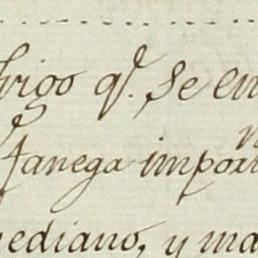 trigo q.e se en
fanega impor
mediano, y ma